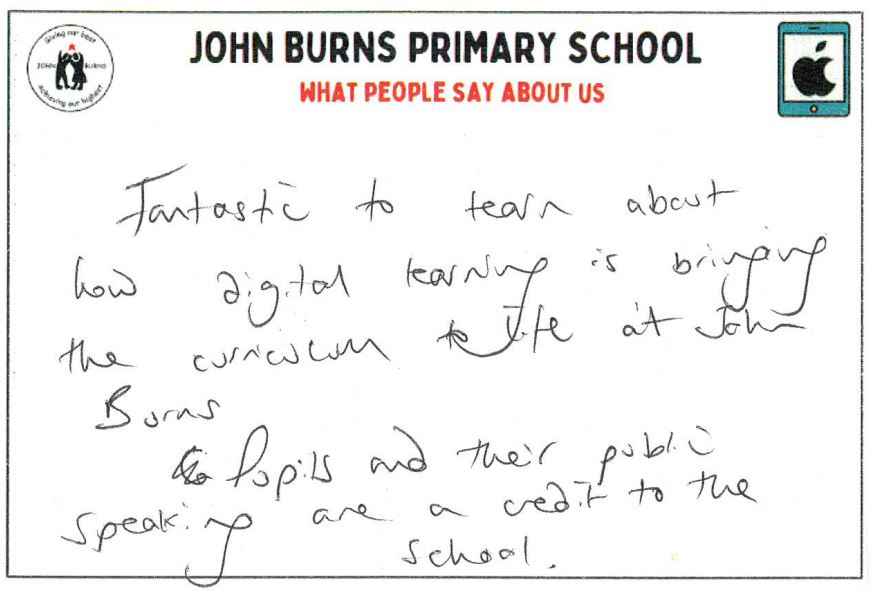 Giving our best
JOHN BURNS
achieving our highest
JOHN BURNS PRIMARY SCHOOL
WHAT PEOPLE SAY ABOUT US
Fantastic to learn about
how digital learning is bringing
the curriculum to life at John
Burns
Pupils and their public
speaking are a credit to the
school.